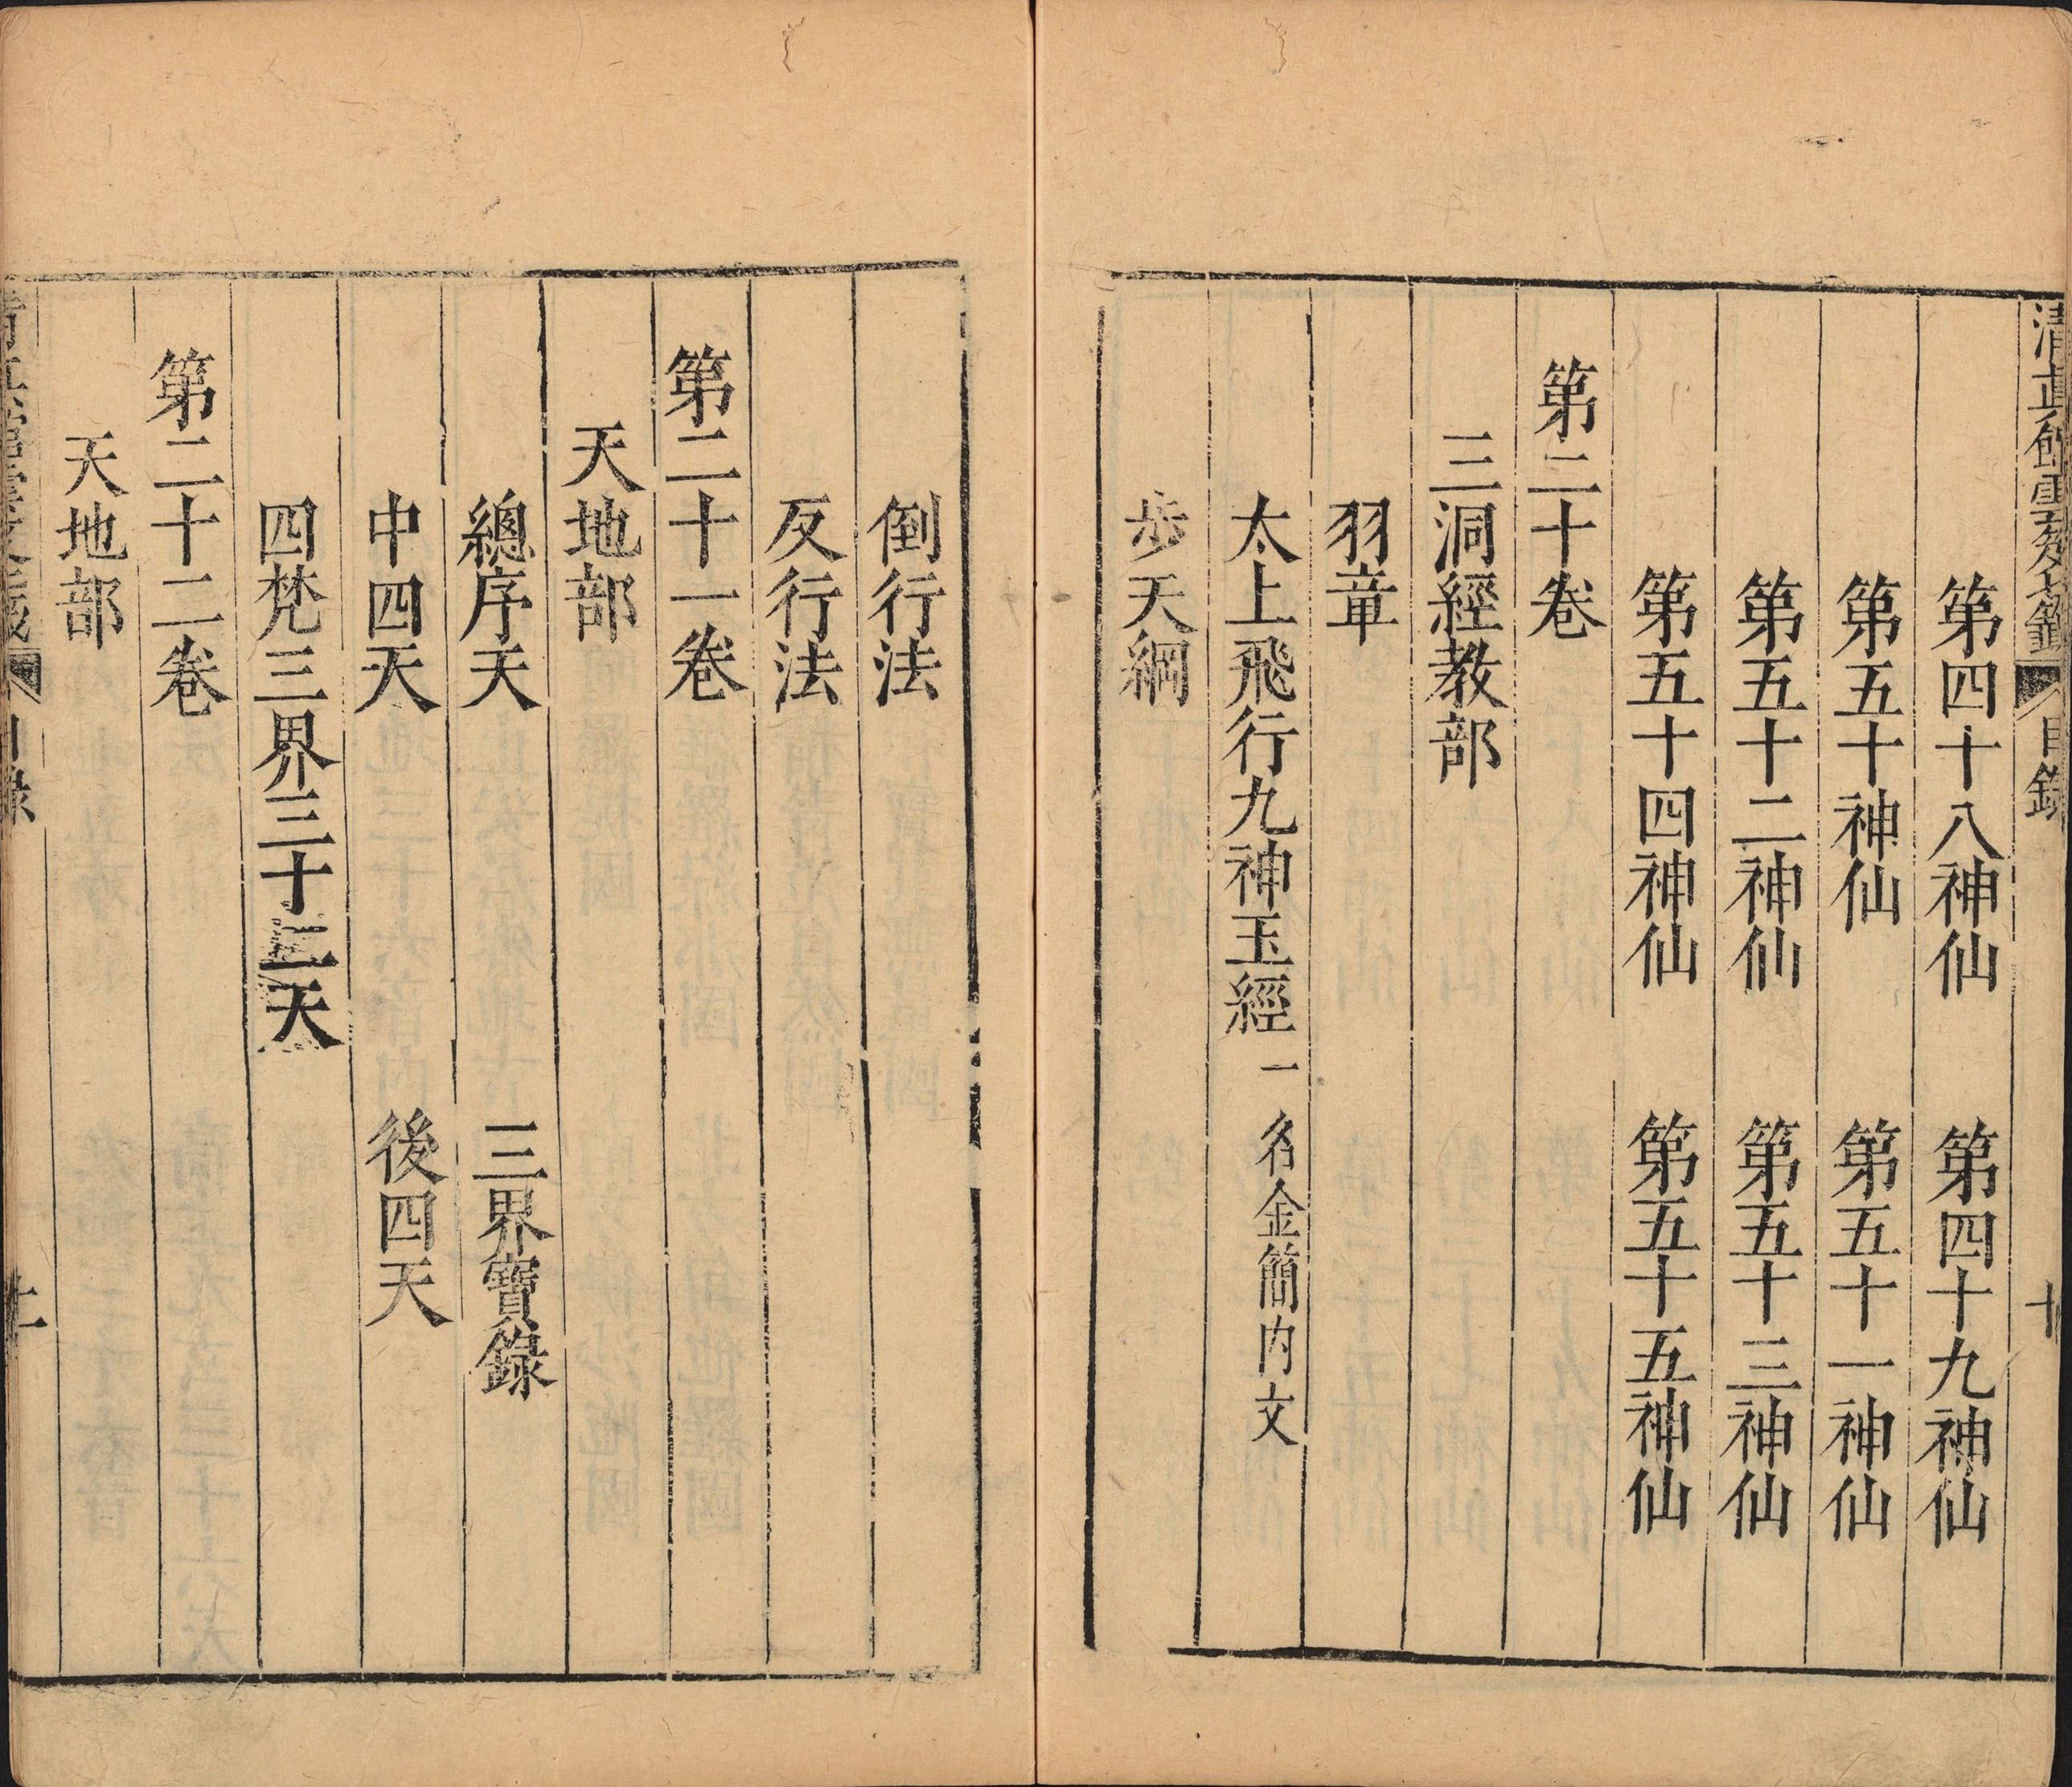 清真館雲笈七籤 目錄 十
第四十八神仙 第四十九神仙
第五十神仙 第五十一神仙
第五十二神仙 第五十三神仙
第五十四神仙 第五十五神仙
第二十卷
三洞經教部
羽章
太上飛行九神玉經一名金簡內文
步天綱
倒行法
反行法
第二十一卷
天地部
總序天 三界寶錄
中四天 後四天
四梵三界三十二天
第二十二卷
天地部